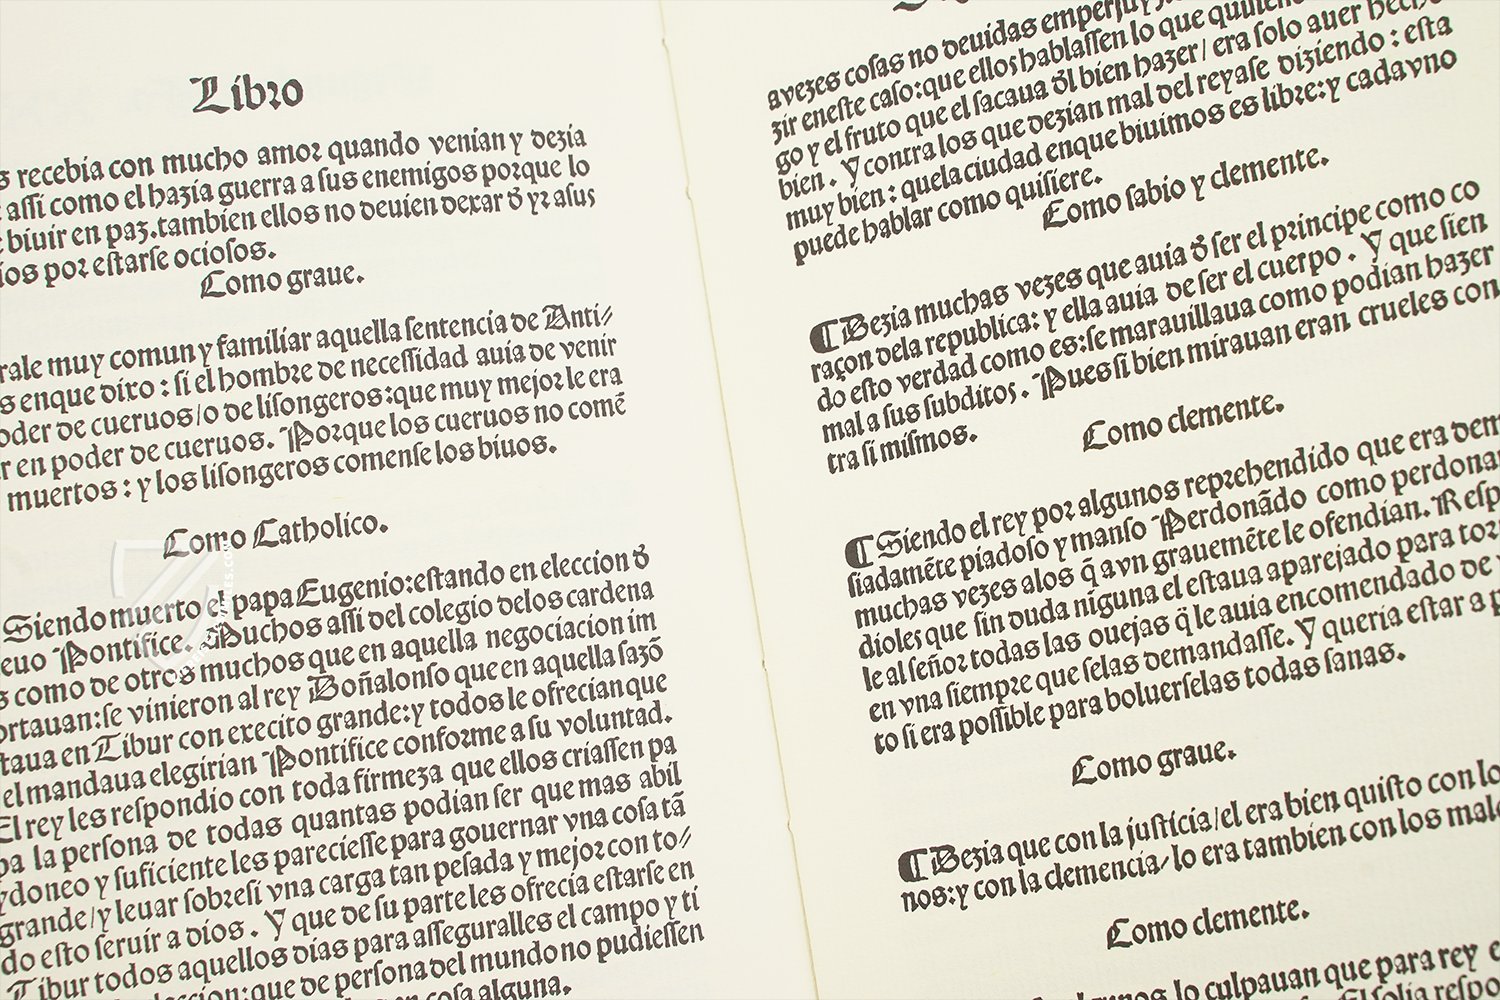 Libro
s recebia con mucho amor quando venian y dezia
assi como el hazia guerra a sus enemigos porque lo
biuir en paz.tambien ellos no deuien dexar ð yr asus
ios por estarse ociosos.
Como graue.
rale muy comun y familiar aquella sentencia de Anti⸗
s enque dixo : si el hombre de necessidad auia de venir
oder de cueruos/o de lisongeros:que muy mejor le era
r en poder de cueruos. Porque los cueruos no comẽ
muertos : y los lisongeros comense los biuos.
Como Catholico.
Siendo muerto el papa Eugenio:estando en eleccion ð
euo Pontifice. Muchos assi del colegio delos cardena
s como de otros muchos que en aquella negociacion im
ortauan:se vinieron al rey Doñalonso que en aquella sazõ
staua en Tibur con execito grande:y todos le ofrecian que
el mandaua elegirian Pontifice conforme a su voluntad.
El rey les respondio con toda firmeza que ellos criassen pa
pa la persona de todas quantas podian ser que mas abil
ydoneo y suficiente les pareciesse para gouernar vna cosa tã
grande/y leuar sobresi vna carga tan pesada y mejor con to⸗
do esto seruir a dios . Y que de su parte les ofrecia estarse en
Tibur todos aquellos dias para asseguralles el campo y ti
eccion:que de persona del mundo no pudiessen
en cosa alguna.
avezes cosas no deuidas
zir eneste caso:que ellos hablassen lo que
go y el fruto que el sacaua ðl bien hazer/ era solo auer
bien . Y contra los que dezian mal del reyase diziendo : esta
muy bien : quela ciudad enque biuimos es libre:y cadavno
puede hablar como quisiere.
Como sabio y clemente.
¶ Dezia muchas vezes que auia ð ser el principe como co
raçon dela republica: y ella auia de ser el cuerpo . Y que sien
do esto verdad como es:se marauillaua como podian hazer
mal a sus subditos . Pues si bien mirauan eran crueles con
tra si mismos.
Como clemente.
¶ Siendo el rey por algunos reprehendido que era dem
siadamẽte piadoso y manso Perdonãdo como perdona
muchas vezes alos q̃ avn grauemẽte le ofendian. Resp
dioles que sin duda niguna el estaua aparejado para tor
le al señor todas las ouejas q̃ le auia encomendado de
en vna siempre que selas demandasse. Y queria estar a p
to si era possible para boluerselas todas sanas.
Como graue.
¶ Dezia que con la justicia/el era bien quisto con lo
nos:y con la clemencia/ lo era tambien con los mal
Como clemente.
lo culpauan que para rey
El solia respo